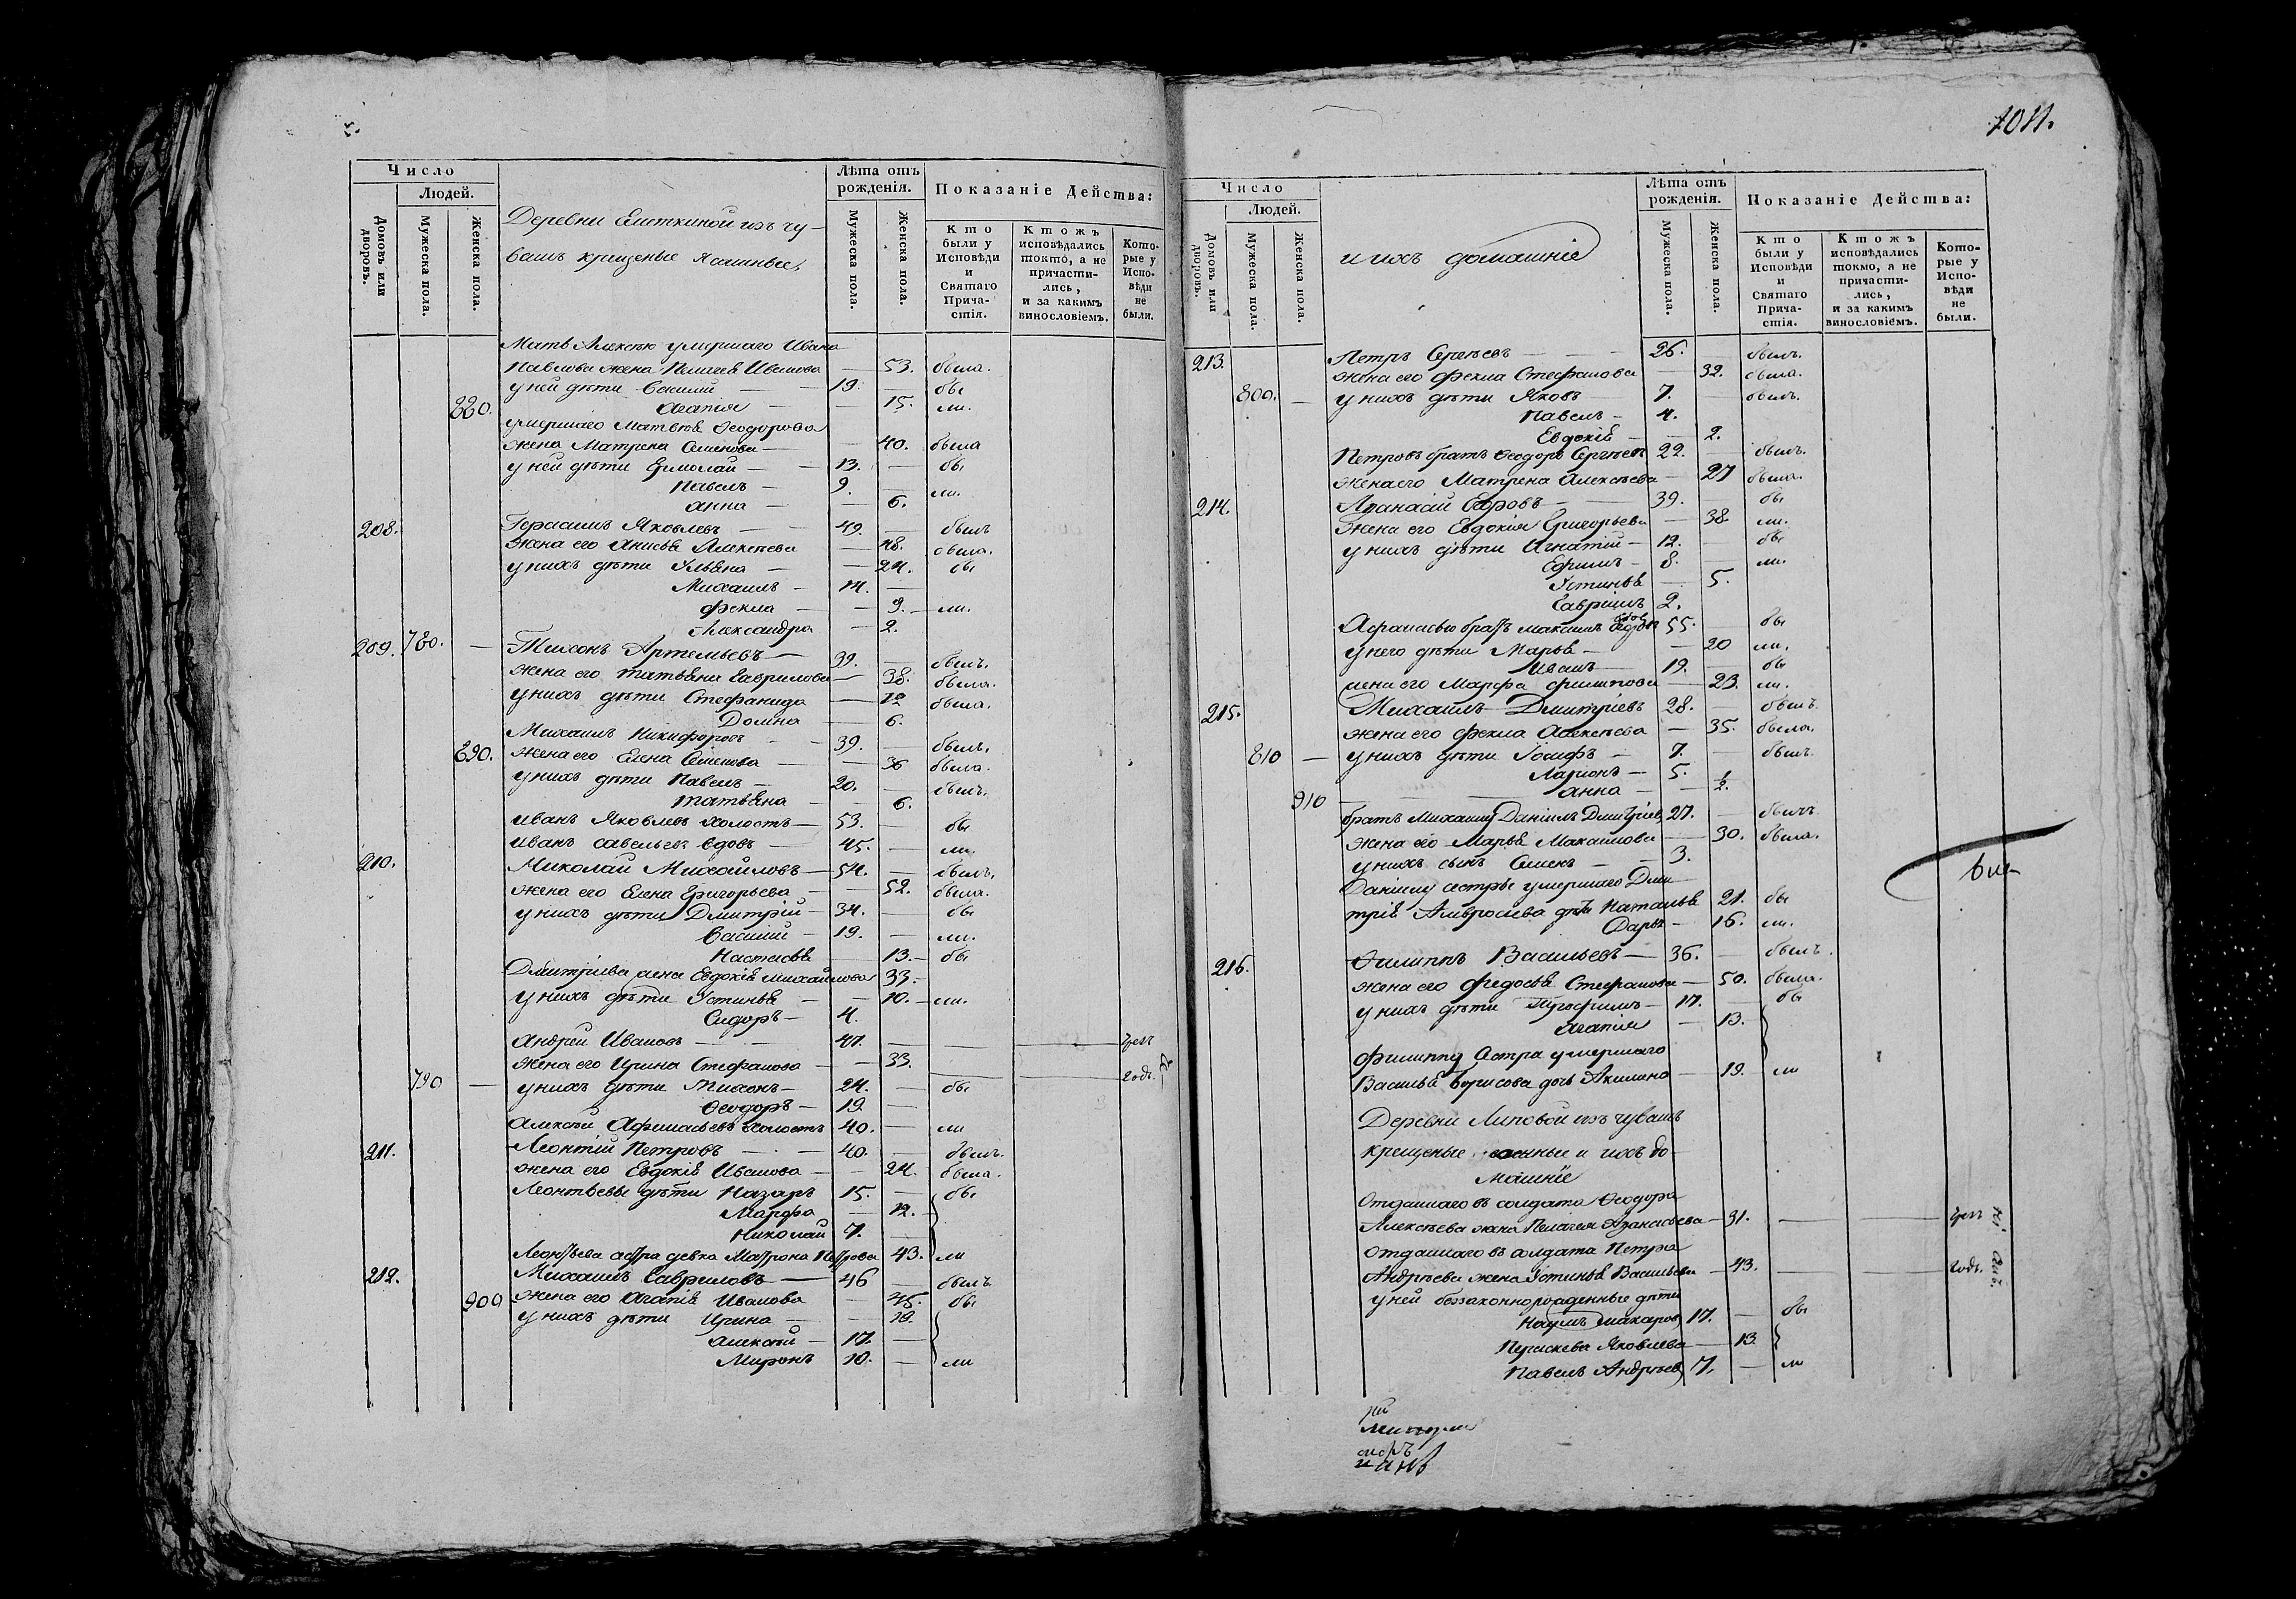 Число
Людей.
Домовъ или дворовъ.
Мужеска пола.
Женска пола.
Деревни Елшкиной изъ чу-
вашъ крещеные ясашные,
Лѣта отъ рожденія.
Мужеска пола.
Женска пола.
Показаніе Дѣйства:
Кто были у Исповѣди и Святаго Причастія.
Ктожъ исповѣдались токмо, а не причастились, и за какимъ винословіемъ.
Которые у Исповѣди не были.
Мать Алексѣю умершаго Ивана
Павлова жена Пелагея Иванова — 53. была.
у ней дѣти Василий — 19. бы
880. Агапия — 15. ли.
умершаго Матвѣя Ѳеодорова
жена Матрена Семенова — 40. была
у ней дѣти Ермолай — 13. — бы
Павелъ — 9. — ли.
Анна — 6.
208. Герасимъ Яковлевъ — 49. — былъ
жена его Анисья Алексѣева — 48. была.
у нихъ дѣти Ульяна — 24. бы
Михаилъ — 14. —
Фекла — 9. — ли.
Александра — 2.
209. 780. — Тихонъ Артемьевъ — 39. — былъ.
жена его Татьяна Гаврилова — 38. была.
у нихъ дѣти Стефанида — 12 была.
Домна — 6.
Михаилъ Никифоровъ — 39. — былъ.
890. жена его Елена Семенова — 36 была.
у нихъ дѣти Павелъ — 20. — былъ.
Татьяна — 6.
Иванъ Яковлевъ холостъ — 53. — бы
Иванъ Савельевъ вдовъ — 45. — ли.
210. Николай Михайловъ — 54. — былъ.
жена его Елена Григорьева — 52. была.
у нихъ дѣти Дмитрій — 34. — бы
Василий — 19. — ли.
Настасья 13. — бы
Дмитріева жена Евдокія Михайлова 33. —
у нихъ дѣти Устинья — 10. — ли.
Сидоръ — 4.
Андрей Ивановъ — 47. —
жена его Ирина Стефанова — 33.
790 — у нихъ дѣти Тихонъ — 24. — бы
Ѳеодоръ — 19. —
Алексѣй Афанасьевъ холостъ 40. — ли
211. Леонтій Петровъ — 40. — былъ.
жена его Евдокія Иванова — 24. была.
Леонтьевы дѣти Назаръ 15. — бы
Марфа — 12.
Николай 7. —
Леонтьева сестра девка Матрона Петрова 43. ли
212. Михаилъ Гавриловъ — 46 — былъ
900 жена его Агапія Иванова — 45. бы
у нихъ дѣти Ирина — 19.
Алексѣй — 17. —
Миронъ 10. — ли
1011.
Число
Людей.
Домовъ или дворовъ.
Мужеска пола.
Женска пола.
и ихъ домашніе
Лѣта отъ рожденія.
Мужеска пола.
Женска пола.
Показаніе Дѣйства:
Кто были у Исповѣди и Святаго Причастія.
Ктожъ исповѣдались токмо, а не причастились, и за какимъ винословіемъ.
Которые у Исповѣди не были.
213. Петръ Сергѣевъ — 26. — былъ.
жена его Фекла Стефанова — 32. была.
800. — у нихъ дѣти Яковъ 7. — былъ.
Павелъ — 4.
Евдокія — 2.
Петровъ братъ Ѳеодоръ Сергѣевъ 22. — былъ.
жена его Матрена Алексѣева — 27 была.
214. Афанасій Егоровъ — 39. — бы
жена его Евдокія Григорьева — 38. ли.
у нихъ дѣти Игнатій — 12. — бы
Ефимъ — 8. — ли.
Устинья — 5.
Гавріилъ 2.
Афанасью братъ Максимъ Егоровъ 55. — бы
у него дѣти Марья — 20 ли.
Иванъ — 19. — бы
жена его Марфа Филипова — 23. ли.
215. Михаилъ Дмитріевъ 28. — былъ.
жена его Фекла Алексѣева — 35. была.
810 — у нихъ дѣти Іосифъ — 7. — былъ.
Ларіонъ — 5.
910 Анна — 1/2.
братъ Михаилу Даніилъ Дмитріевъ 27. — былъ.
жена его Марья Максимова — 30. была.
у нихъ сынъ Семенъ — 3.
Данилу сестры умершаго Дми
трія Амвросіева дѣти Наталья 21. бы
Дарья — 16. ли.
216. Филиппъ Васильевъ — 36. — былъ.
жена его Федосья Стефанова — 50. была.
у нихъ дѣти Трофимъ — 17. — бы
Агапія — 13.
Филиппу сестра умершаго
Василья Борисова дочь Акилина — 19. ли
Деревни Липовой изъ чувашъ
крещеные военные и ихъ до-
машніе
Отданнаго въ солдата Ѳеодора
Алексѣева жена Пелагея Афанасьева — 31. —
Отданнаго въ солдата Петра
Андрѣева жена Устинья Васильева — 43. —
у ней беззаконнорожденные дѣти
Наумъ Макаровъ 17. — бы
Праскева Яковлева — 13.
Павелъ Андрѣевъ 7. — ли